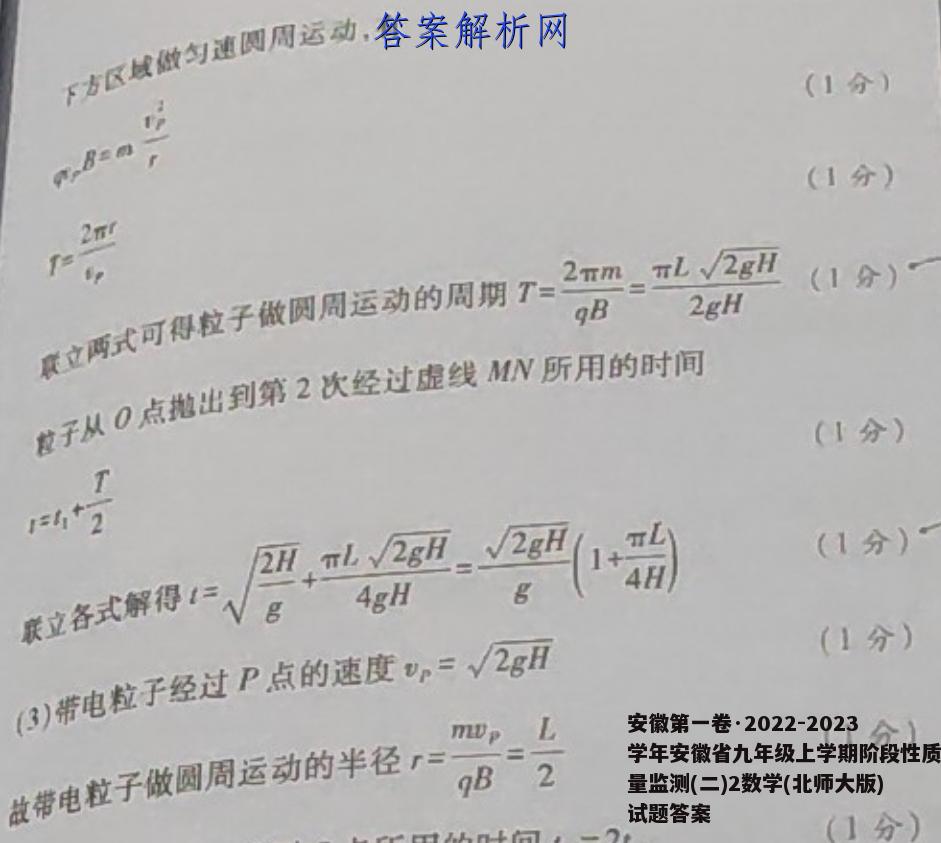 下方区域做匀速圆周运动,
答案解析网
qv_P B=m v_P^2/r (1分)
T=2πr/v_P (1分)
联立两式可得粒子做圆周运动的周期 T=2πm/qB=πL√2gH/2gH (1分)
粒子从 O 点抛出到第 2 次经过虚线 MN 所用的时间
t=t_1+T/2 (1分)
联立各式解得 t=√(2H/g)+πL√2gH/4gH=√2gH/g(1+πL/4H) (1分)
(3)带电粒子经过 P 点的速度 v_P=√2gH (1分)
故带电粒子做圆周运动的半径 r=mv_P/qB=L/2
安徽第一卷·2022-2023
学年安徽省九年级上学期阶段性质
量监测(二)2数学(北师大版)
试题答案
点所用的时间 (1分)